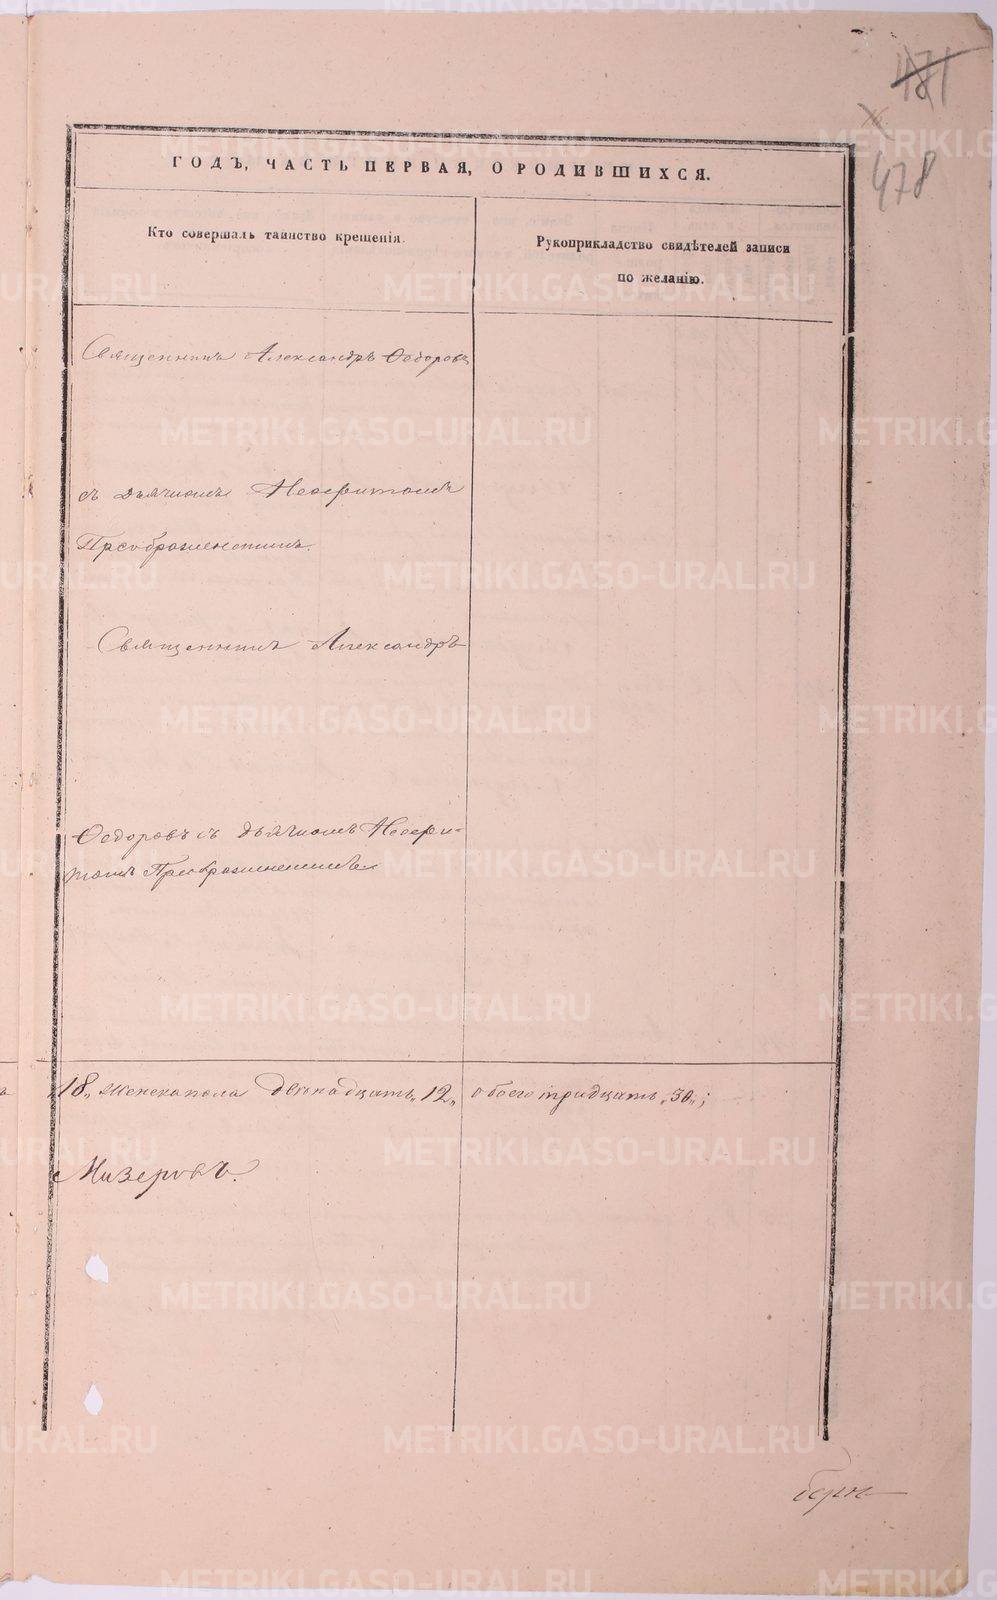 478
ГОДЪ, ЧАСТЬ ПЕРВАЯ, О РОДИВШИХСЯ.
Кто совершалъ таинство крещенія.
Рукоприкладство свидѣтелей записи
по желанію.
Священникъ Александръ Ѳедоровъ
съ дьячкомъ Неофитомъ
Преображенскимъ.
Священникъ Александръ
Ѳедоровъ съ дьячкомъ Неофи-
томъ Преображенскимъ
„18„ женска пола двѣнадцать „12„ обоего тридцать „30„;
Мизеровъ.
METRIKI.GASO-URAL.RU